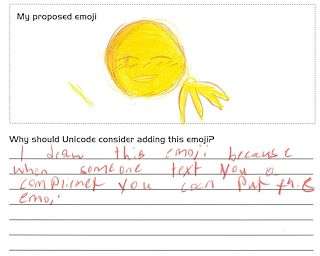 My proposed emoji
Why should Unicode consider adding this emoji?
I draw this emoji because
when someone text you a
complimet you can put this
emoji